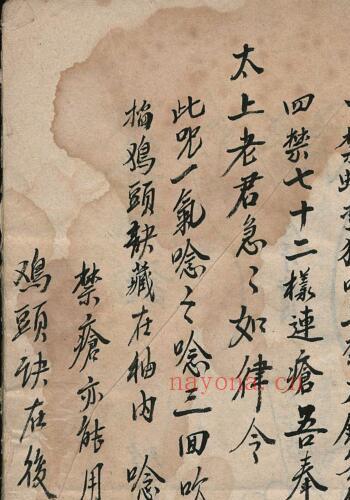 四禁七十二樣連瘡吾奉
太上老君急〻如律令
此咒一氣唸之唸三回吹
掐鴉頭訣藏在袖內 唸
禁瘡亦能用
鴉頭訣在後
nayona.cn